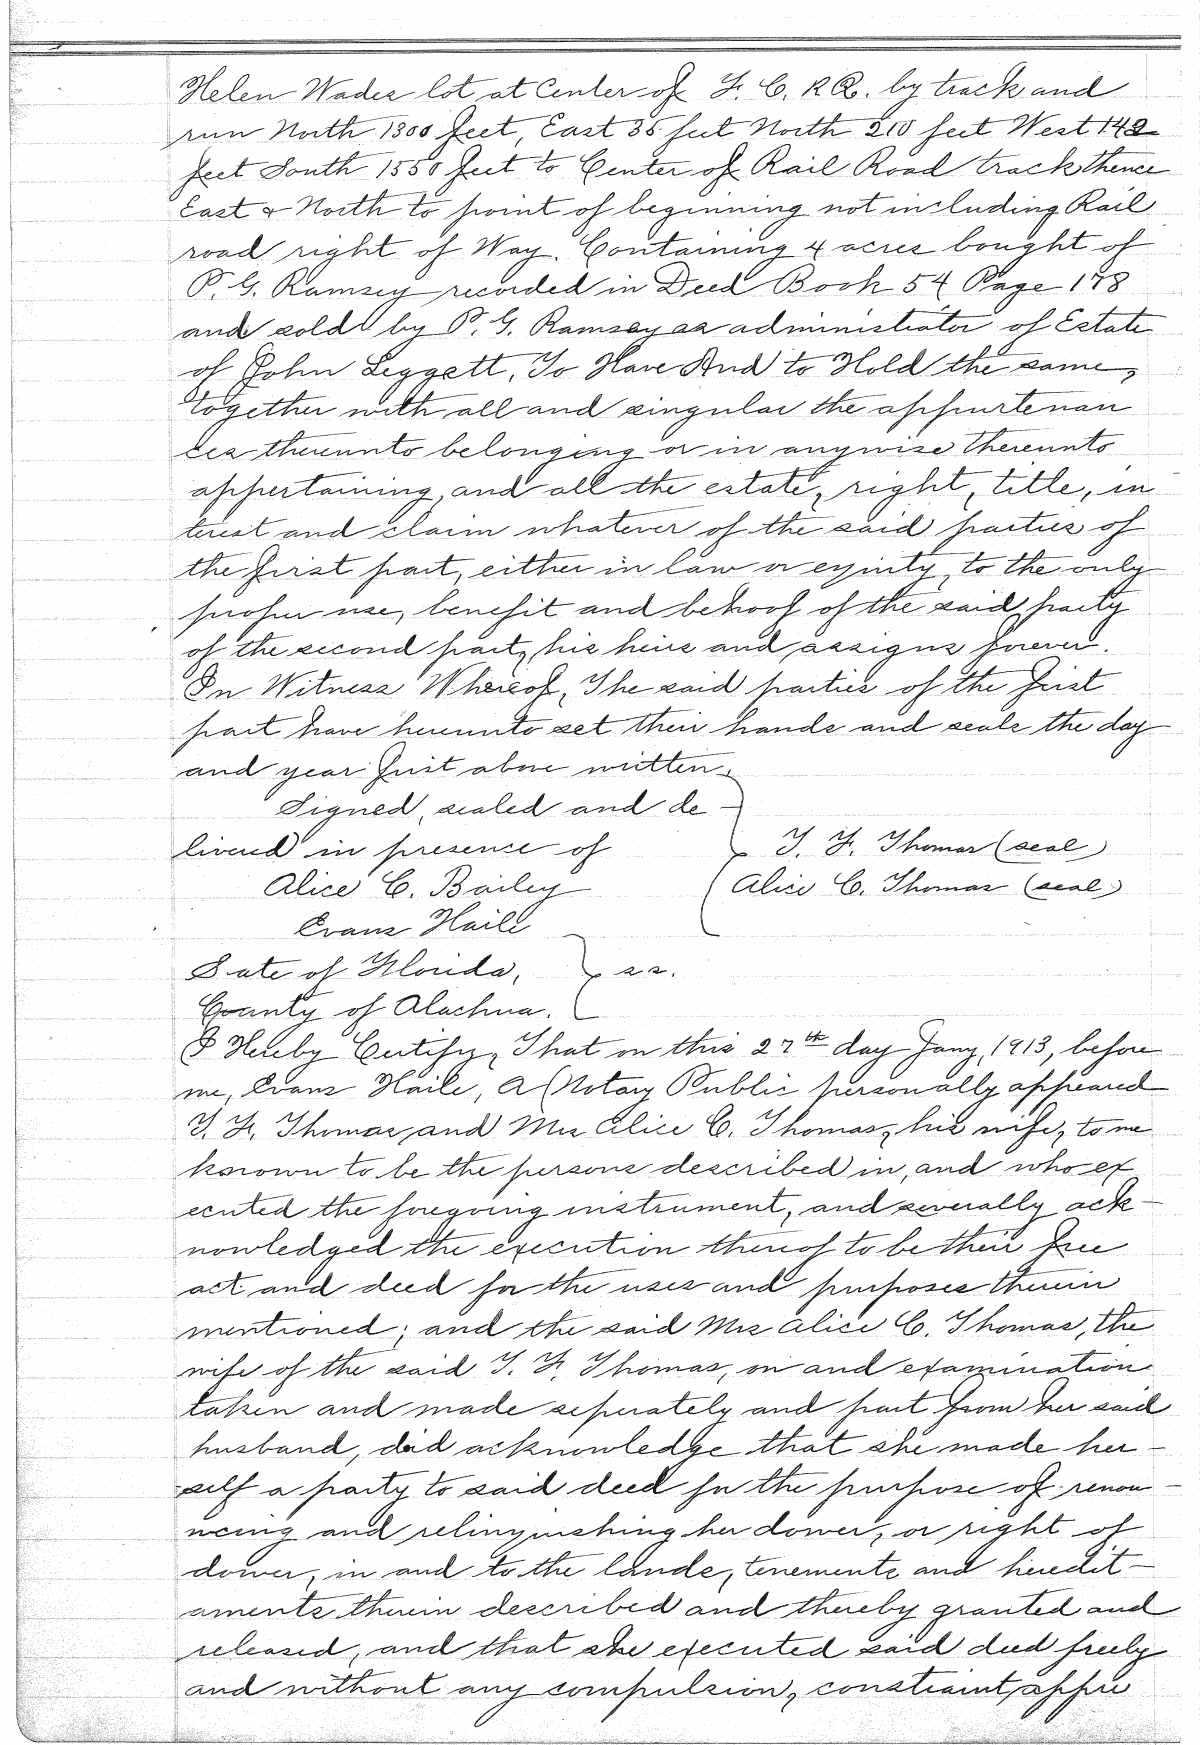 Helen Wades lot at Center of F. C. R R. by track and
run North 1300 feet, East 35 feet North 210 feet West 142
feet South 1550 feet to Center of Rail Road track thence
East & North to point of beginning not including Rail
road right of Way. Containing 4 acres bought of
P. G. Ramsey recorded in Deed Book 54 Page 178
and sold by P. G. Ramsey as administrator of Estate
of John Leggett, To Have And to Hold the same,
together with all and singular the appurtenan
ces thereunto belonging or in anywise thereunto
appertaining, and all the estate, right, title, in
terest and claim whatever of the said parties of
the first part, either in law or equity, to the only
proper use, benefit and behoof of the said party
of the second part, his heirs and assigns forever.
In Witness Whereof, The said parties of the first
part have hereunto set their hands and seals the day
and year first above written.
Signed, sealed and de -
livered in presence of T. F. Thomas (seal)
Alice C. Bailey Alice C. Thomas (seal)
Evans Haile
State of Florida, ss.
County of Alachua.
I Hereby Certify, That on this 27th day Jany, 1913, before
me, Evans Haile, A Notary Public personally appeared
T. F. Thomas, and Mrs Alice C. Thomas, his wife, to me
known to be the persons described in, and who ex
ecuted the foregoing instrument, and severally ack -
nowledged the execution thereof to be their free
act and deed for the uses and purposes therein
mentioned; and the said Mrs Alice C. Thomas, the
wife of the said T. F. Thomas, on and examination
taken and made seperately and part from her said
husband, did acknowledge that she made her -
self a party to said deed for the purpose of renou -
ncing and relinquishing her dower, or right of
dower, in and to the lands, tenements and heredit -
aments therein described and thereby granted and
released, and that she executed said deed freely
and without any compulsion, constraint, appre